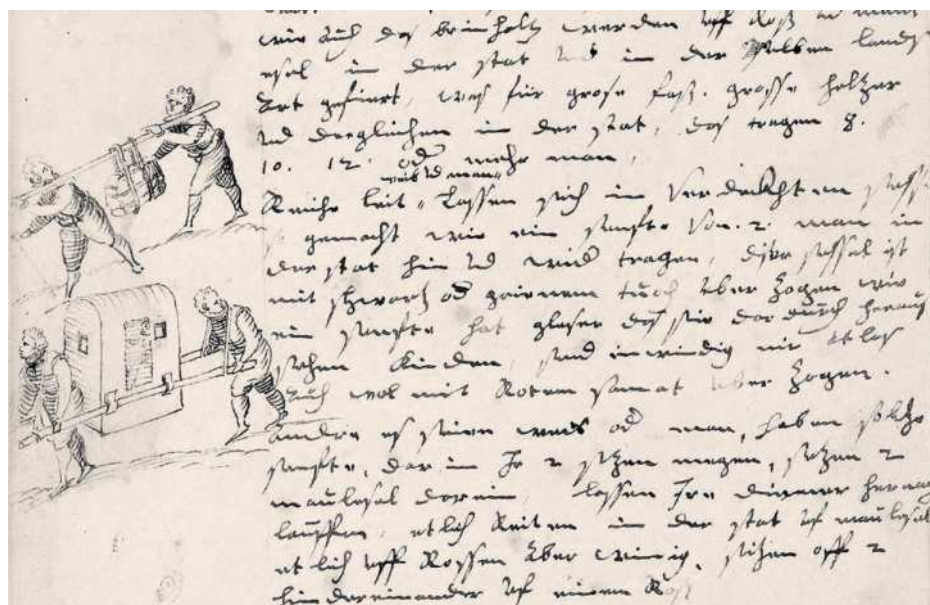 wie auch das brinholtz werden uff Roß und maul
esel in der stat und in der selben lands
art gefiert, was für grose faß. grosse holtzer
und dreglichen in der stat, das tragen 8.
10. 12. oder mehr man,
weib und man
Reiche leit, Lassen sich in Verdeckhten
gemacht wie ein senfte Von .2. man in
der stat hin und wider tragen, diser sessel ist
mit schwartz oder grienem tuoch uber Zogen wie
ein senfte hat gleser das sie dar durch heraus
sehen Kinden, sind inwendig mit atlas
auch wol mit Rotem samat uber Zogen.
andre es seien weib oder man, haben solche
senfte, dar in Ir 2 sitzen megen,
maulesel darein, lassen Ire diener hernach
lauffen, etlich Reiten in der stat uf maulesel
etlich uff Rossen Aber wenig, sitzen offt 2
hindereinander uf einem Roß